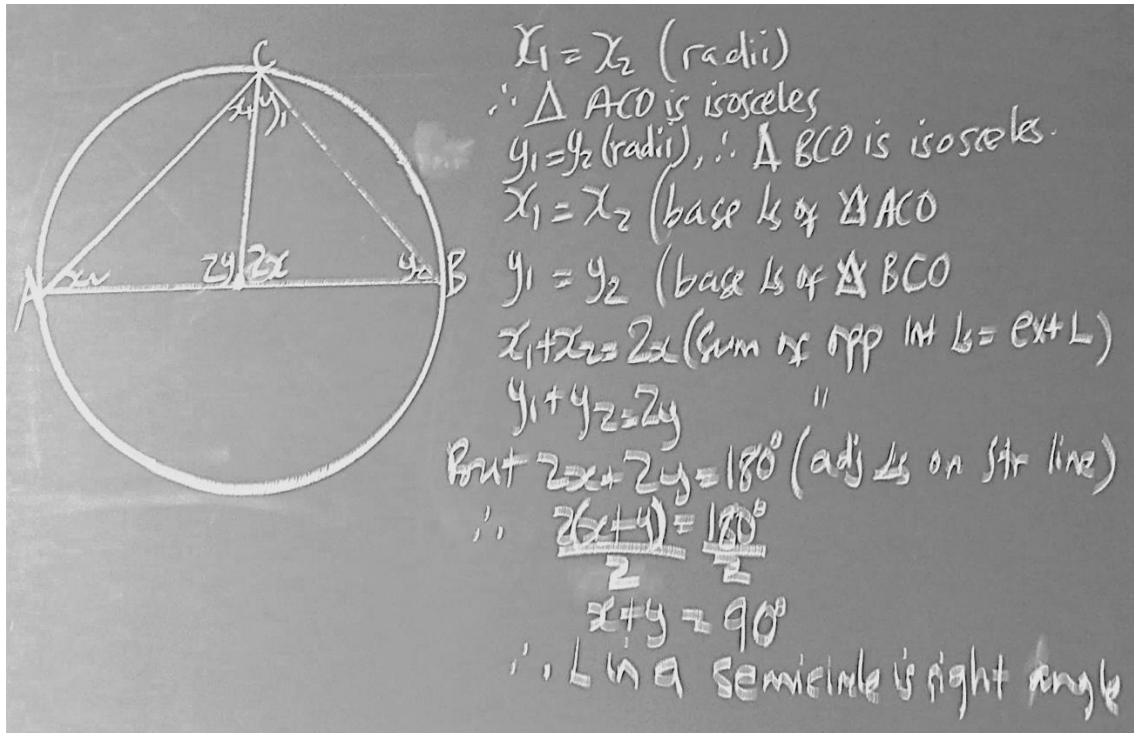 C
x₁ y₁
A x₂ 2y 2x y₂ B
x₁ = x₂ (radii)
∴ Δ ACO is isosceles
y₁ = y₂ (radii), ∴ Δ BCO is isosceles.
x₁ = x₂ (base ∠s of Δ ACO
y₁ = y₂ (base ∠s of Δ BCO
x₁+x₂=2x (sum of opp int ∠s = ext ∠)
y₁+y₂=2y "
But 2x+2y=180° (adj ∠s on str line)
∴ 2(x+y)/2 = 180°/2
x+y = 90°
∴ ∠ in a semicircle is right angle